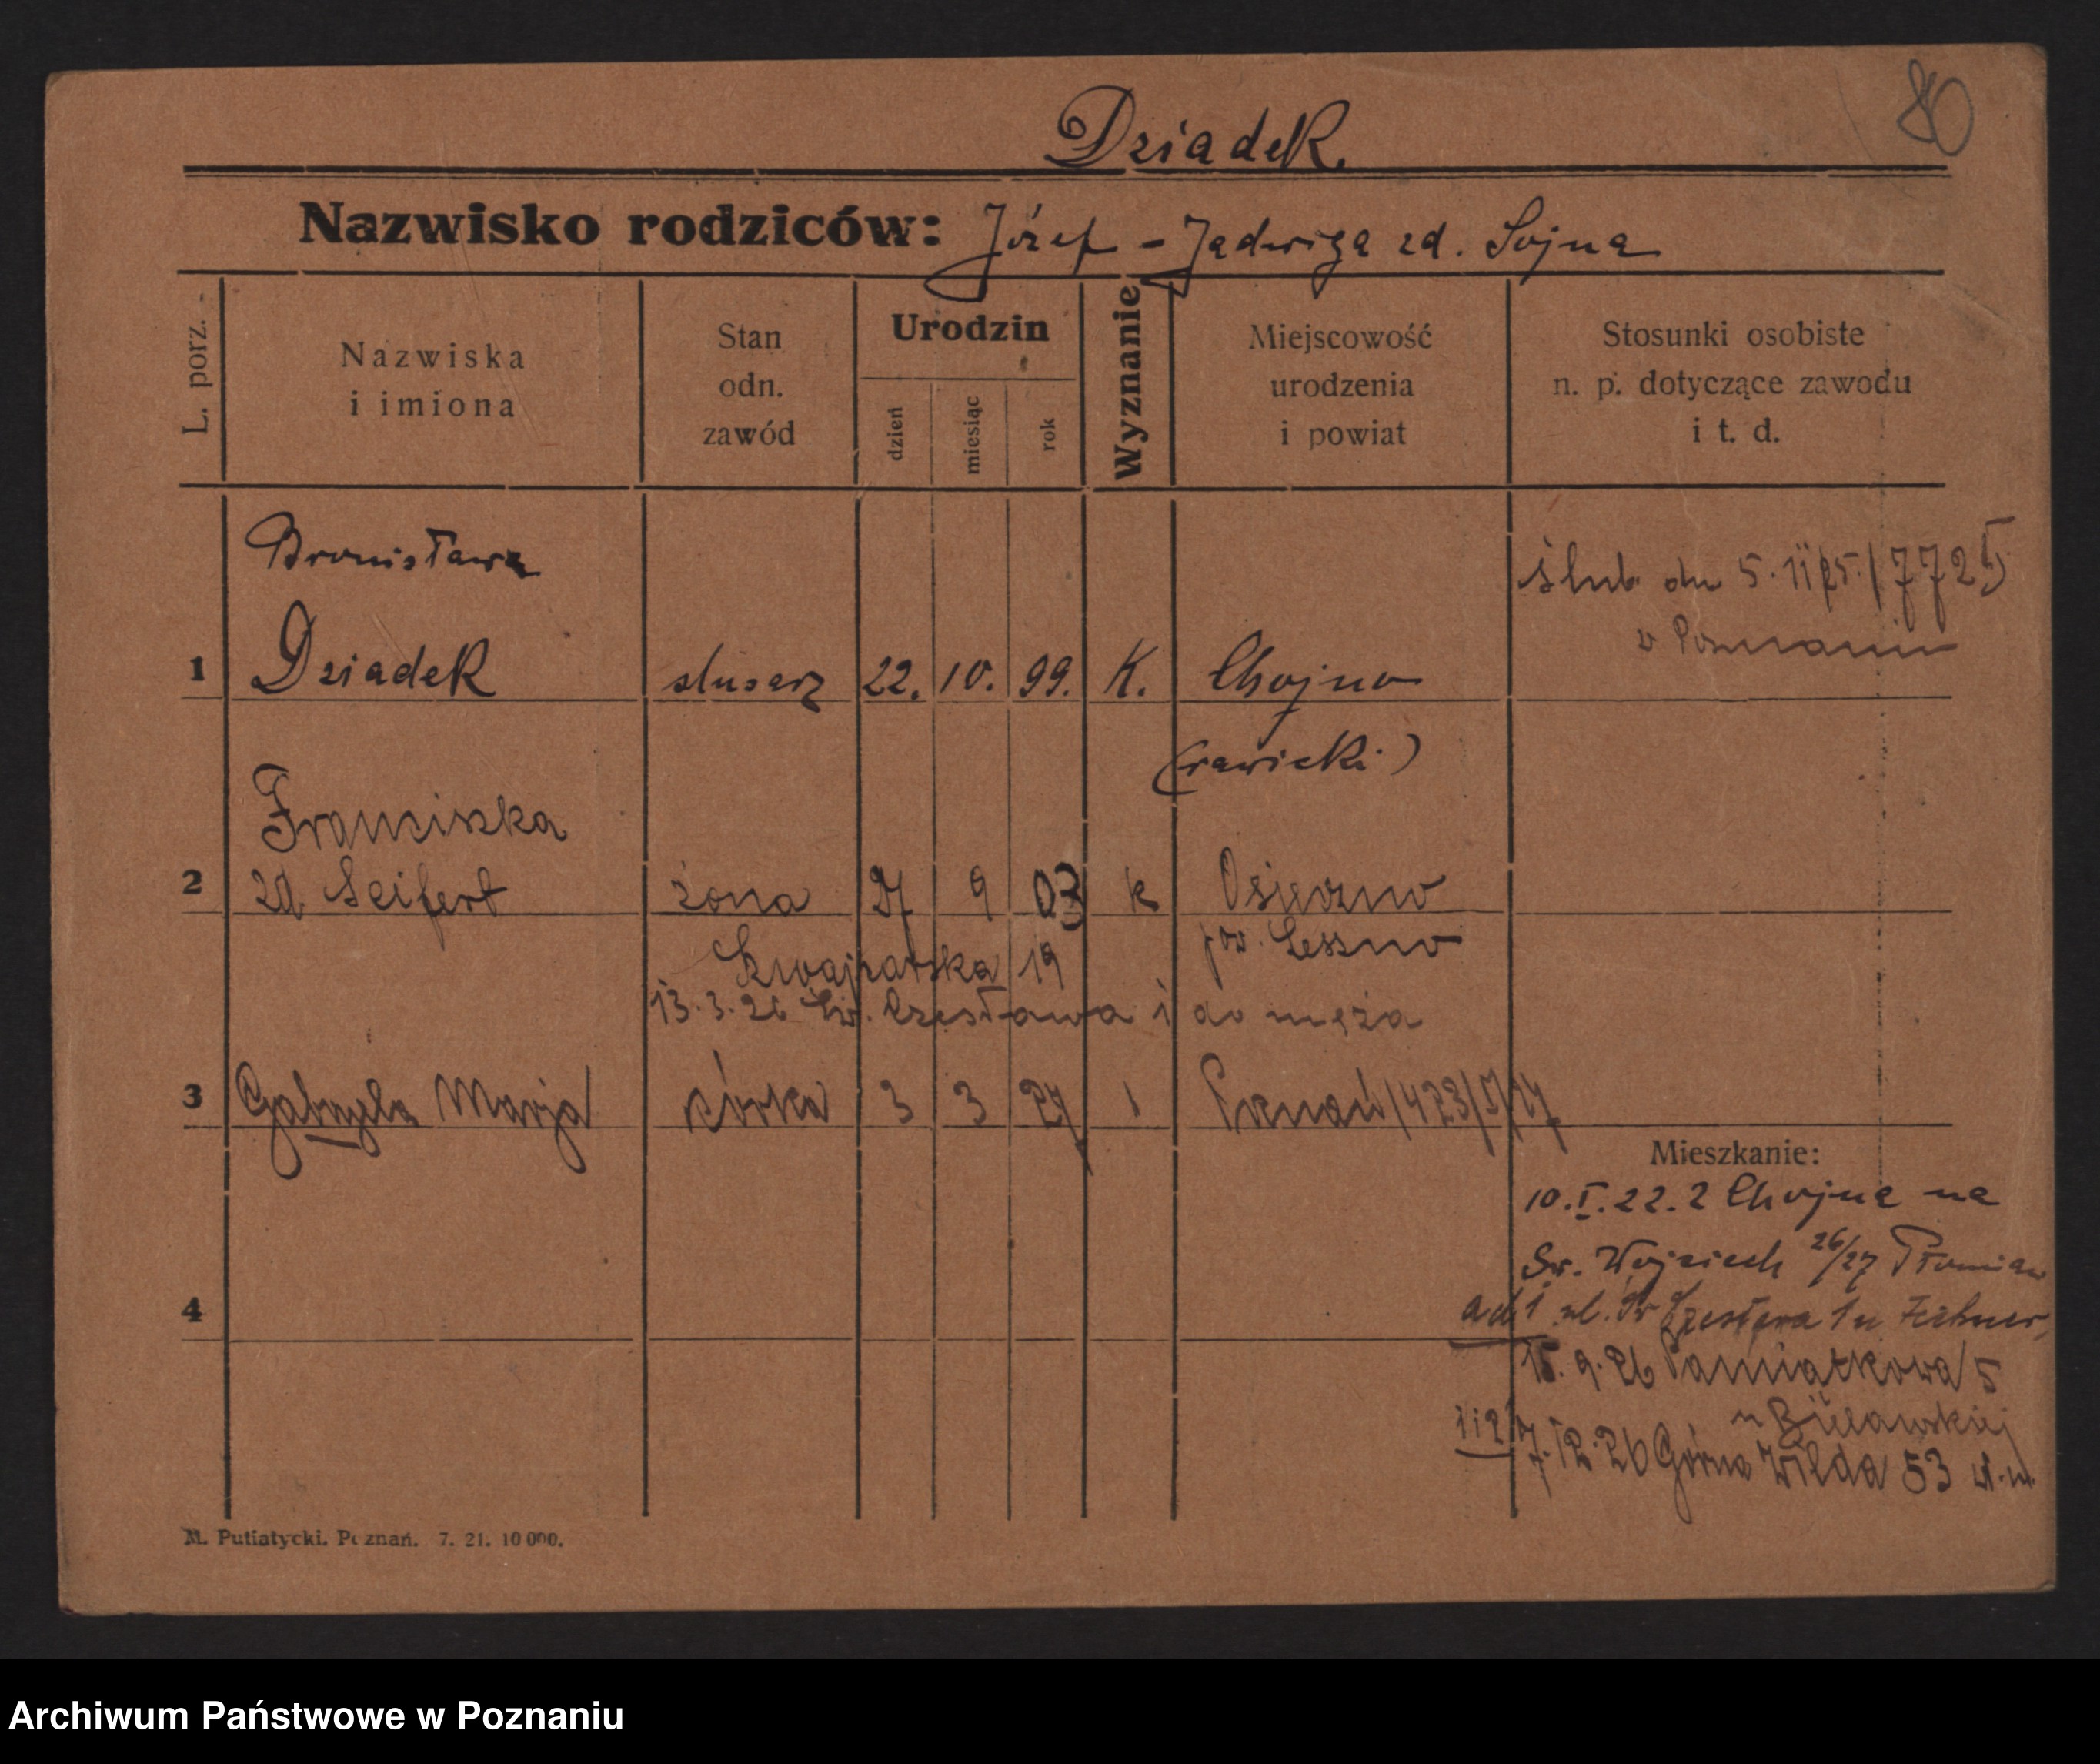 80
Dziadek.
Nazwisko rodziców: Józef - Jadwiga zd. Sojna
L. porz.
Nazwiska
i imiona
Stan
odn.
zawód
Urodzin
dzień
miesiąc
rok
Wyznanie
Miejscowość
urodzenia
i powiat
Stosunki osobiste
n. p. dotyczące zawodu
i t. d.
Bronisława
ślub dn 5. 11/25. / 7725
w Poznaniu
1 Dziadek slusarz 22. 10. 99. K. Chojno
(rawicki)
Franciszka
2 zd Seifert żona 27 9 03 k Osieczno
pow. Leszno
Szwajcarska 19
13.3.26 Św. Czesława 1 do męża
3 Gabryela Marja córka 3 3 27 Poznań/423/V/27
Mieszkanie:
10.I.22. z Chojna na
Św. Wojciech 26/27
4
ad 1 ul. Św Czesława 1 u
15. 9. 26 Pamiątkowa 5
u Bielawskiej
1i2 7. 12. 26 Górna Wilda 53
M. Putiatycki. Poznań. 7. 21. 10 000.
Archiwum Państwowe w Poznaniu